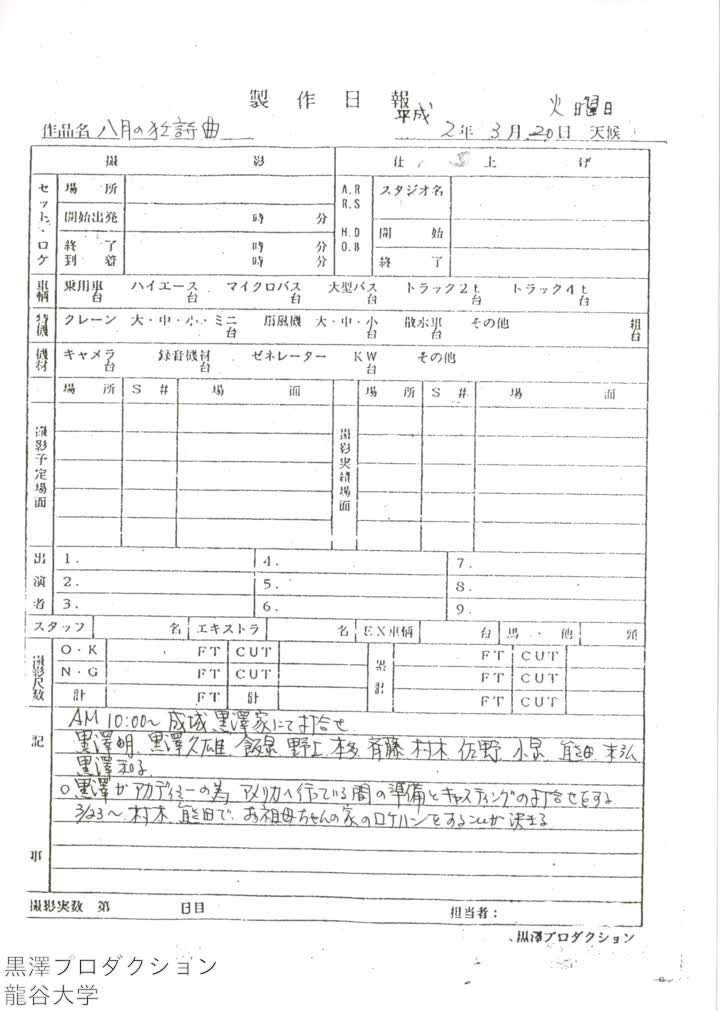 製作日報
作品名 八月の狂詩曲
平成 2年 3月 20日 火曜日 天候
撮影 仕上げ
セット・ロケ 場所 A.R R.S スタジオ名
開始出発 時 分 H.D O.B 開始
終了 時 分 終了
到着 時 分
車輌 乗用車 台 ハイエース 台 マイクロバス 台 大型バス 台 トラック2t 台 トラック4t 台
特機 クレーン 大・中・小・ミニ 台 扇風機 大・中・小 台 散水車 台 その他 組 台
機材 キャメラ 台 録音機材 台 ゼネレーター KW 台 その他
撮影予定場面 場所 S# 場面 撮影実績場面 場所 S# 場面
出演者 1. 4. 7.
2. 5. 8.
3. 6. 9.
スタッフ 名 エキストラ 名 EX車輌 台 馬・他 頭
撮影尺数 O・K FT CUT 累計 FT CUT
N・G FT CUT FT CUT
計 FT 計 FT CUT
記事
AM 10:00〜 成城 黒澤家にて打合せ
黒澤明 黒澤久雄 飯泉 野上 本多 斉藤 村木 佐野 小泉 熊田 末弘
黒澤和子
○黒澤がアカデミーの為、アメリカへ行っている間の準備とキャスティングの打合せをする
3/23〜 村木 熊田で、お祖母ちゃんの家のロケハンをすることが決まる
撮影実数 第 日目 担当者:
黒澤プロダクション
黒澤プロダクション
龍谷大学